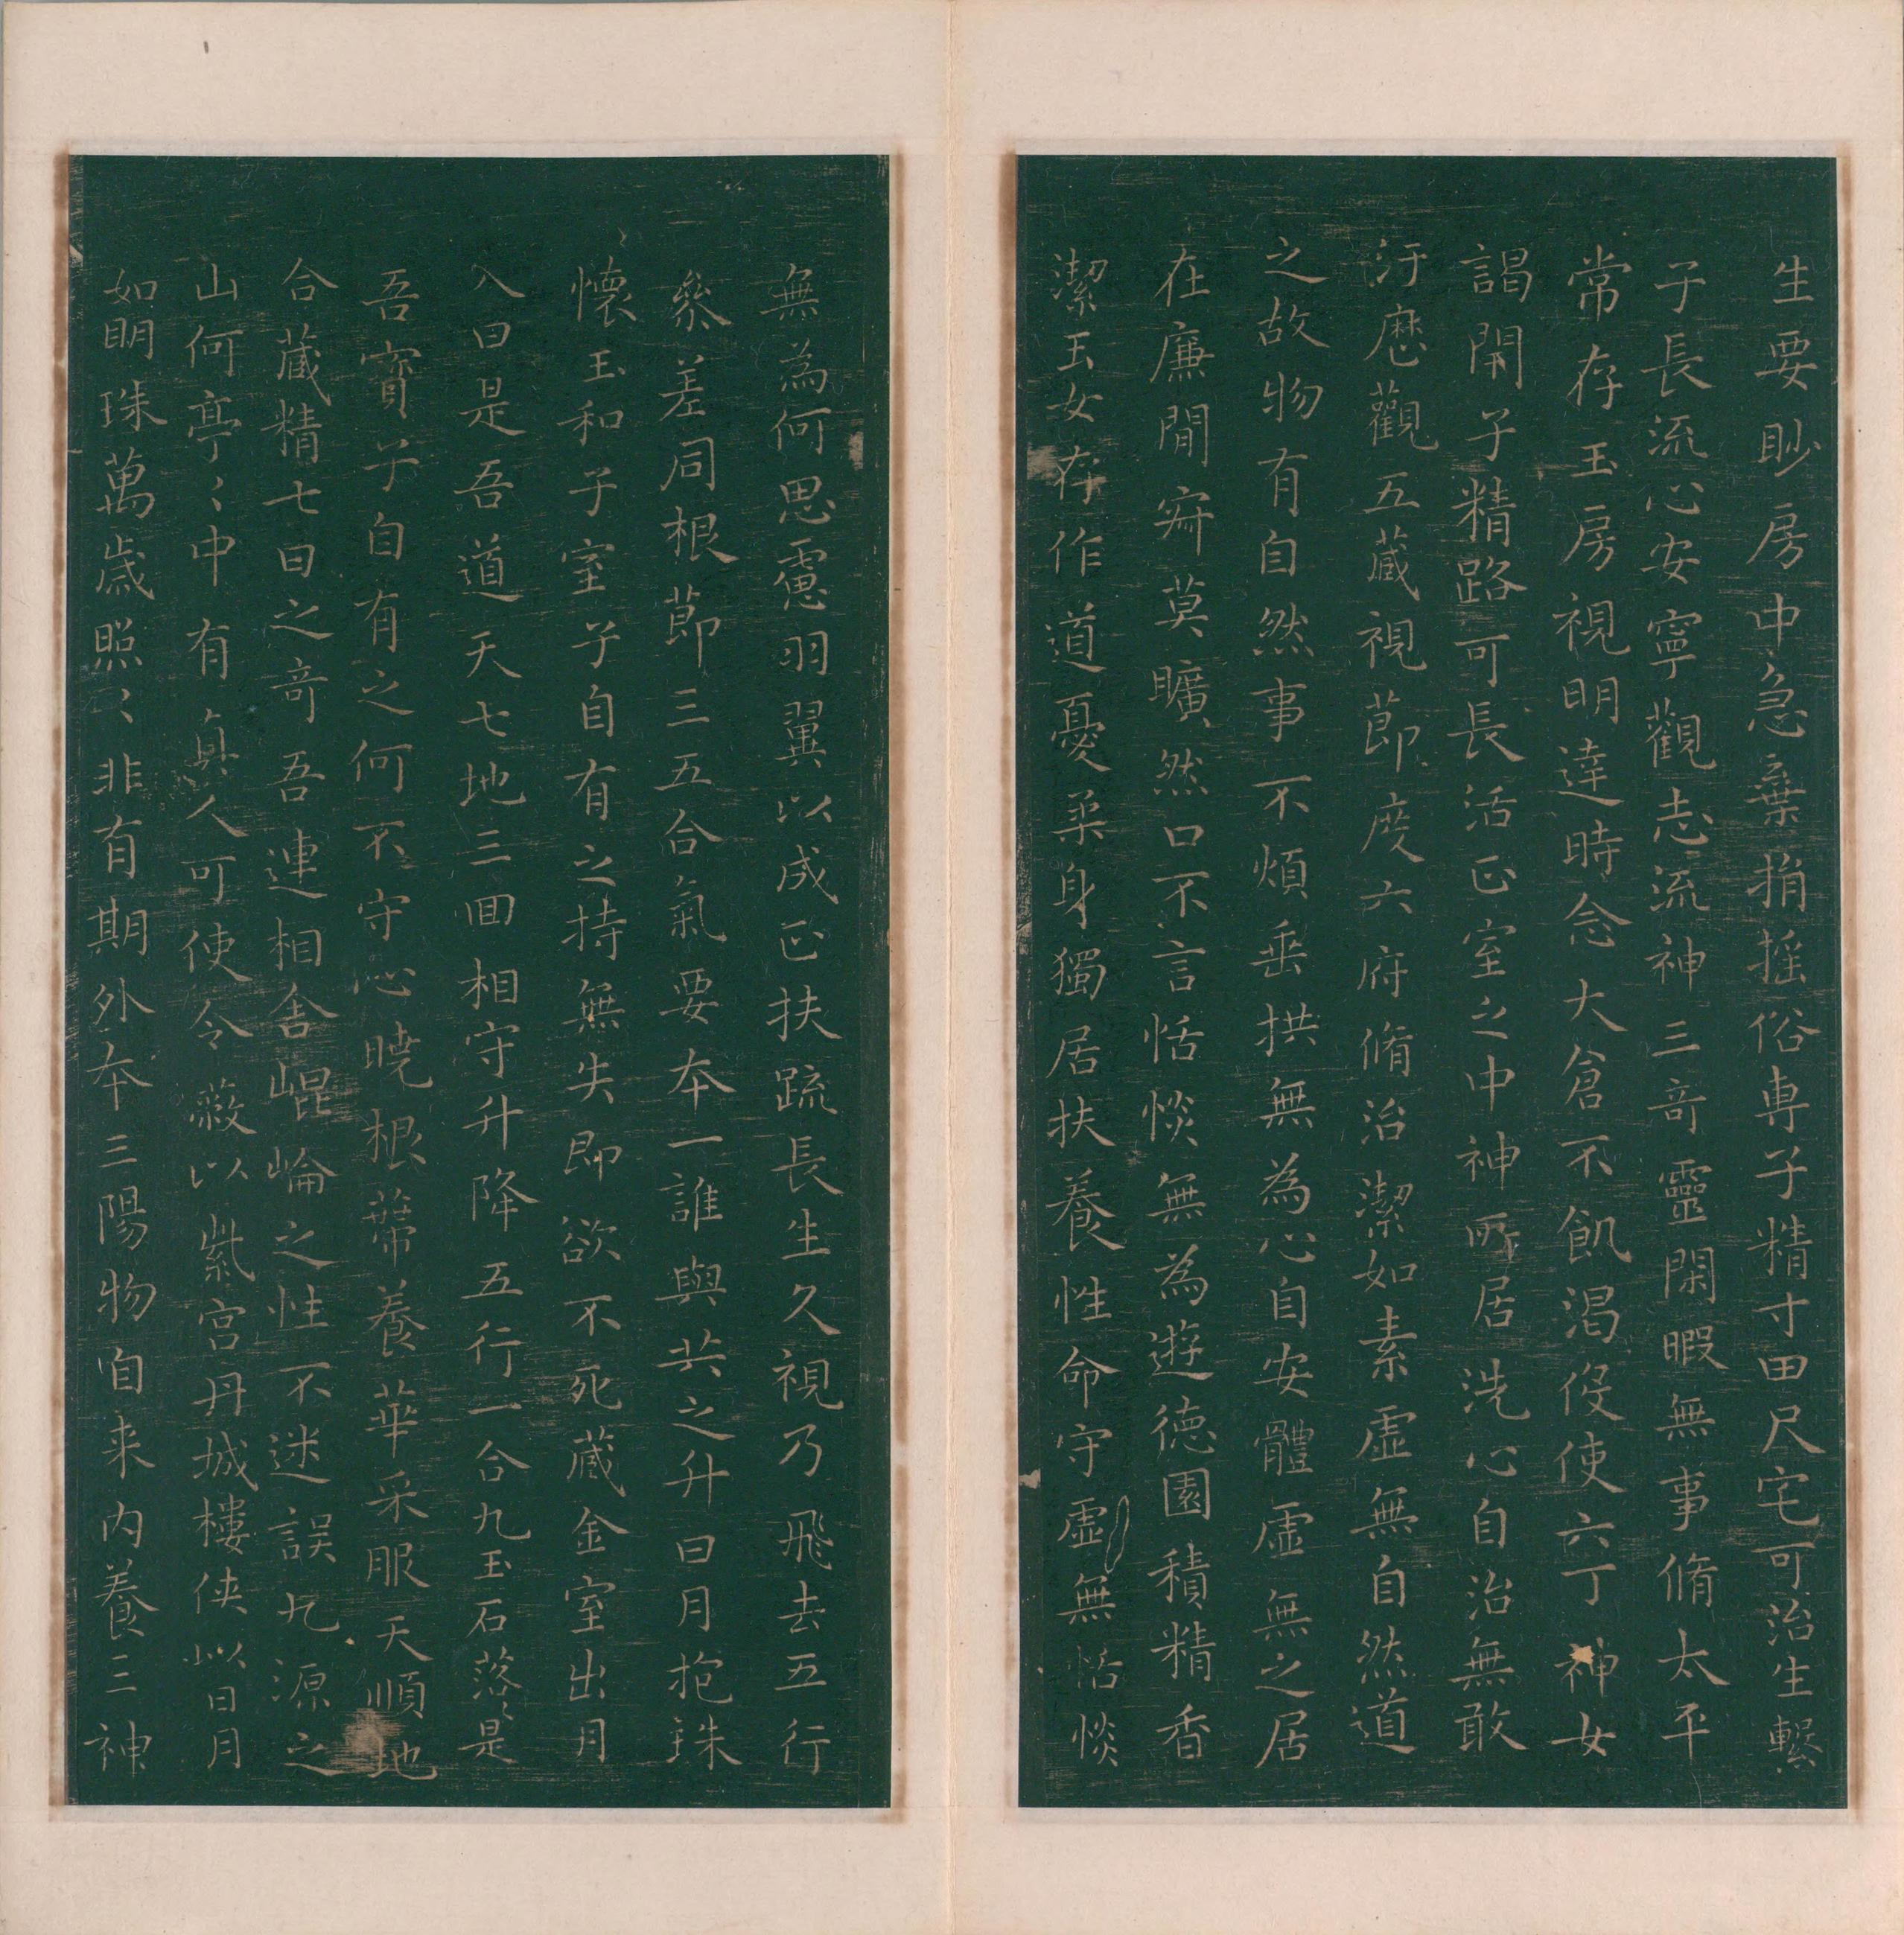 生要眇房中急棄捐摇俗専子精寸田尺宅可治生繫
子長流心安寧觀志流神三竒靈閑暇無事脩太平
常存玉房視明達時念大倉不飢渴侵使六丁神女
謁閇子精路可長活正室之中神所居洗心自治無敢
汙歷觀五蔵視莭度六府脩治潔如素虛無自然道
之故物有自然事不煩垂拱無為心自安體虛無之居
在廉閒寂莫曠然口不言恬惔無為遊徳園積精香
潔玉女存作道憂柔身獨居扶養性命守虛無恬惔
無為何思慮羽翼以成正扶疏長生久視乃飛去五行
叅差同根莭三五合氣要本一誰與共之升日月抱珠
懷玉和子室子自有之持無失即欲不死蔵金室出月
入日是吾道天七地三回相守升降五行一合九玉石落〻是
吾寳子自有之何不守心曉根蔕養華采服天順地
合蔵精七日之竒吾連相舎崐崘之性不迷誤九源之
山何亭〻中有真人可使令蔽以紫宫丹城樓俠以日月
如明珠萬歳照〻非有期外本三陽物自来内養三神